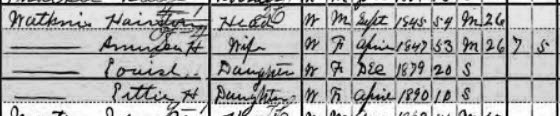 Watkins Hairston Head W M Sept 1845 54 M 26
—— Amanda H Wife W F April 1847 53 M 26 7 5
—— Louise Daughter W F Dec 1879 20 S
—— H Daughter W F April 1890 10 S